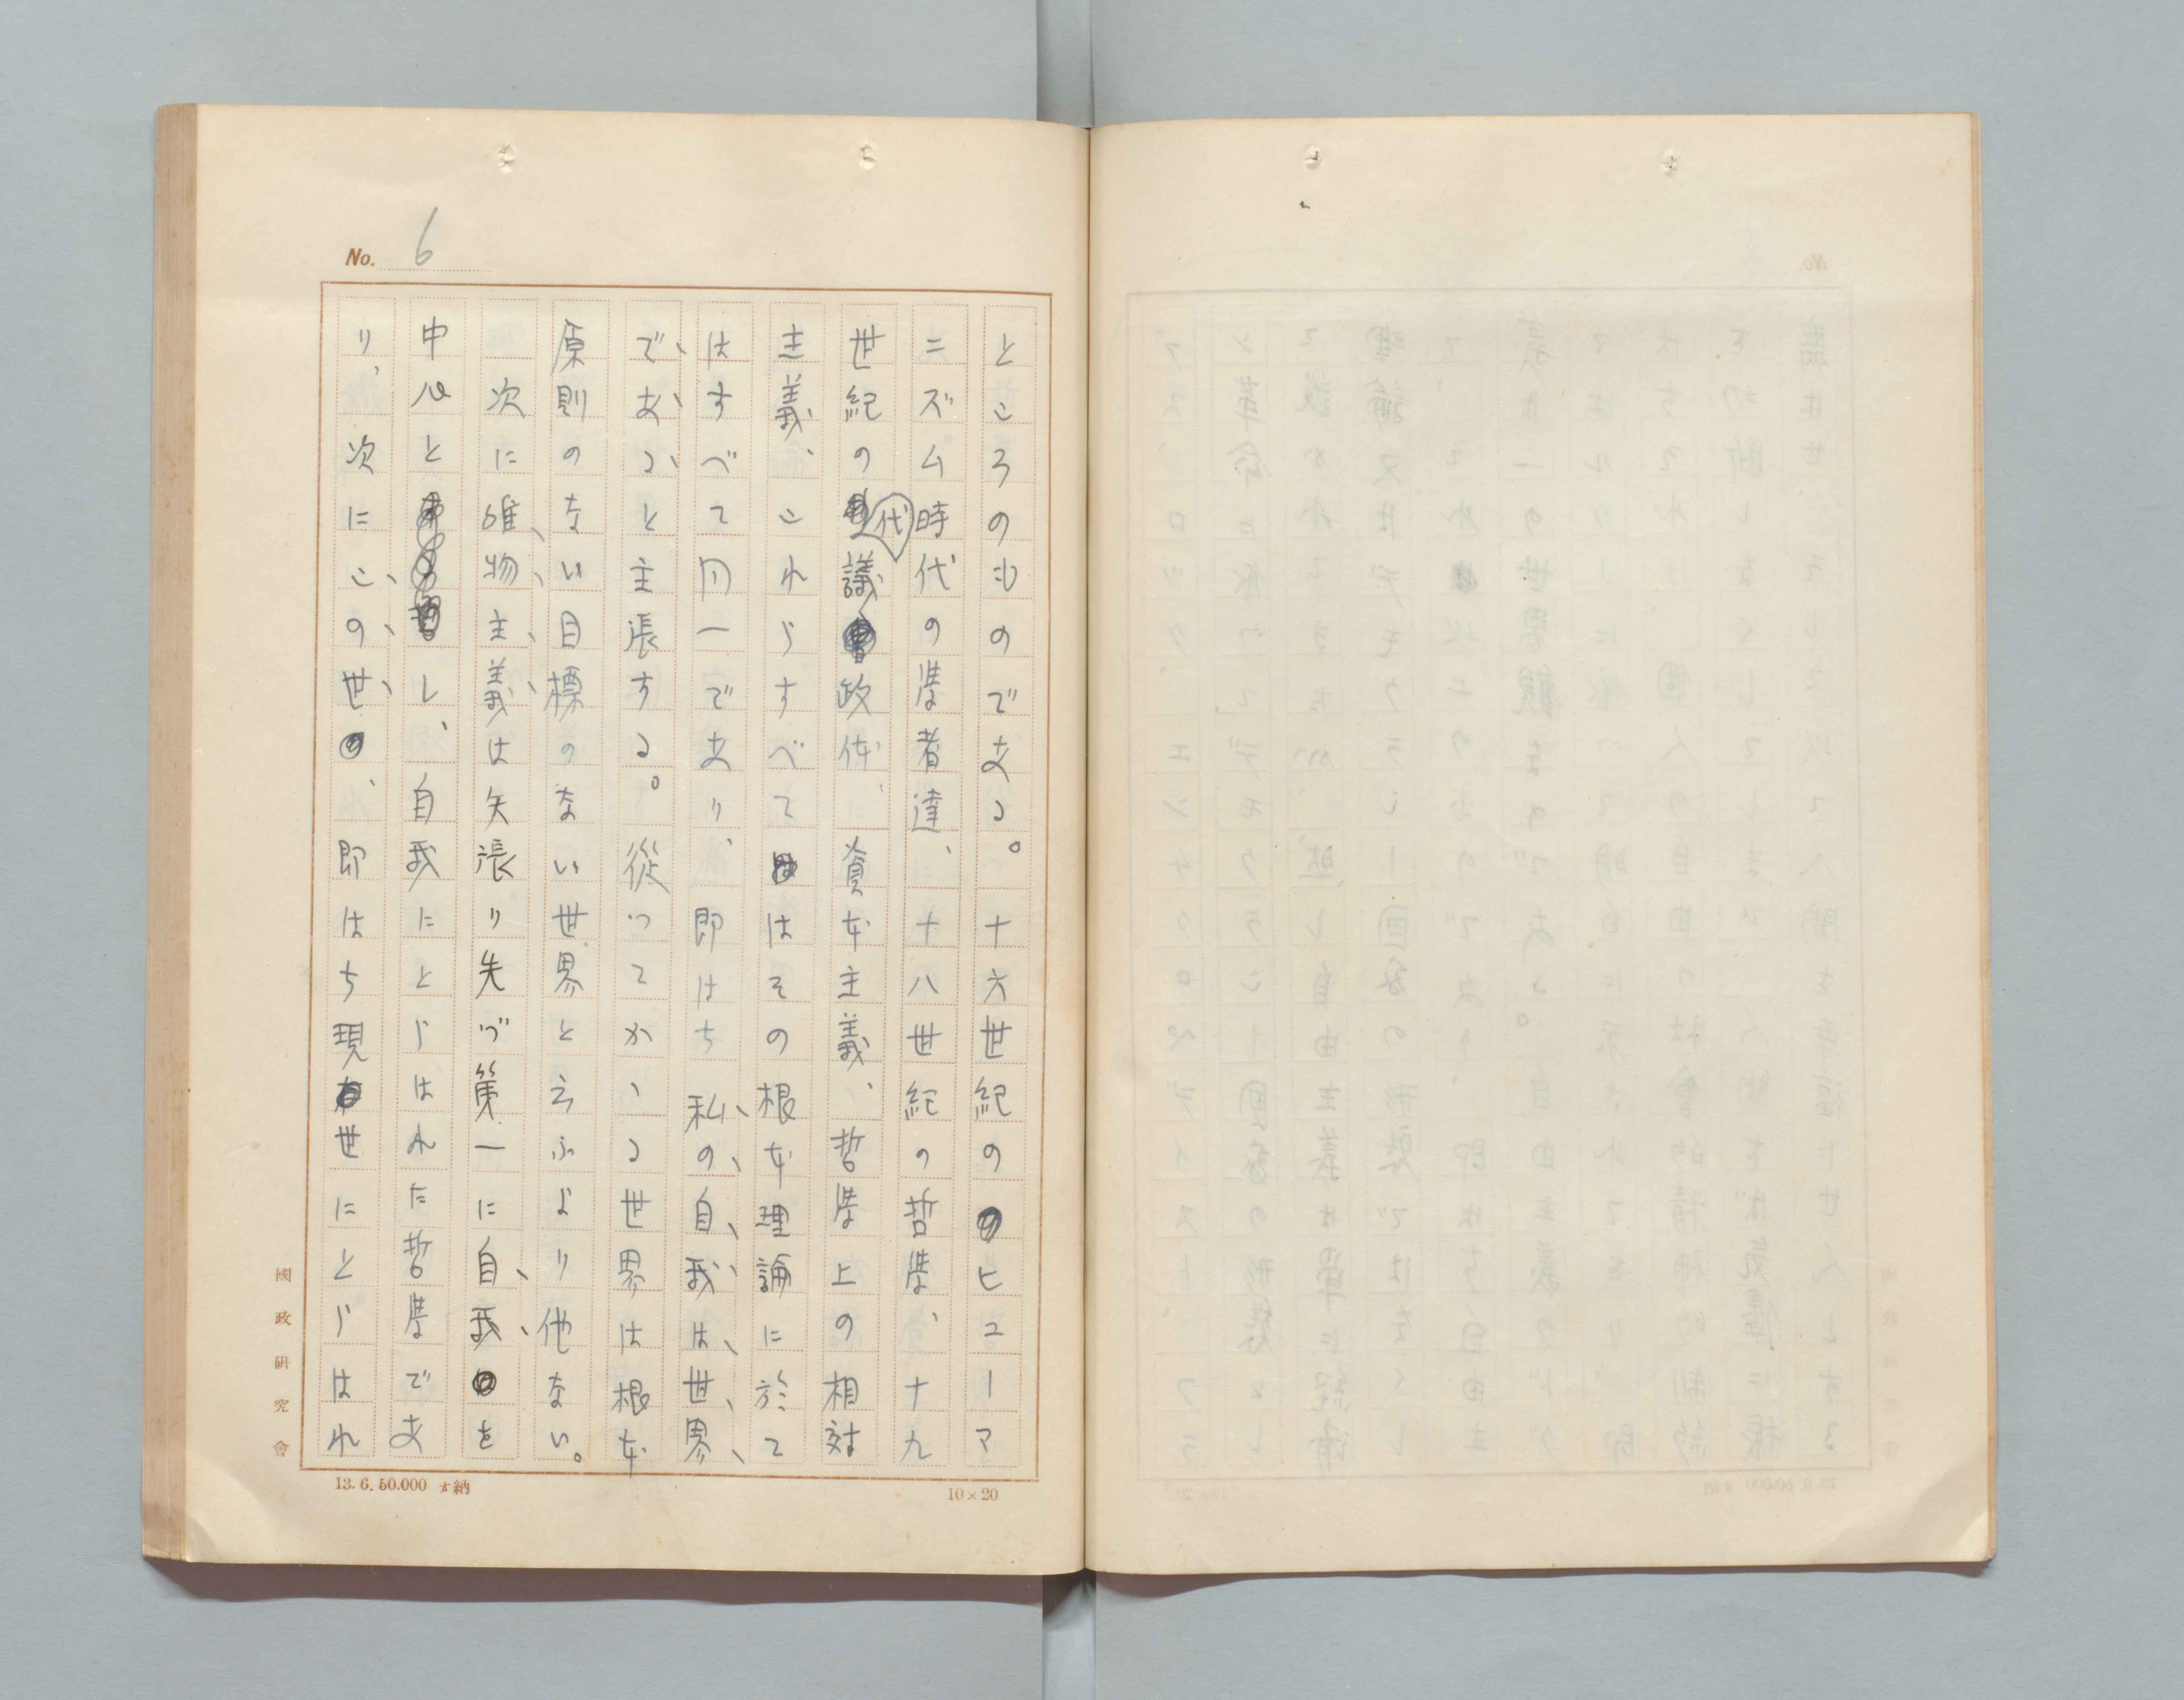 No. 6
ところのものである。十六世紀のヒューマ
ニズム時代の学者達、十八世紀の哲学、十九
世紀の代議政体、資本主義、哲学上の相対
主義、これらすべてはその根本理論に於て
はすべて同一であり、即はち私の自我は世界
であると主張する。従つてかゝる世界は根本
原則のない目標のない世界と云ふより他ない。
次に唯物主義は矢張り先づ第一に自我を
中心とし、自我にとらはれた哲学であ
り、次にこの世、即はち現世にとらはれ
國政研究會
13.6.50.000 納
10×20